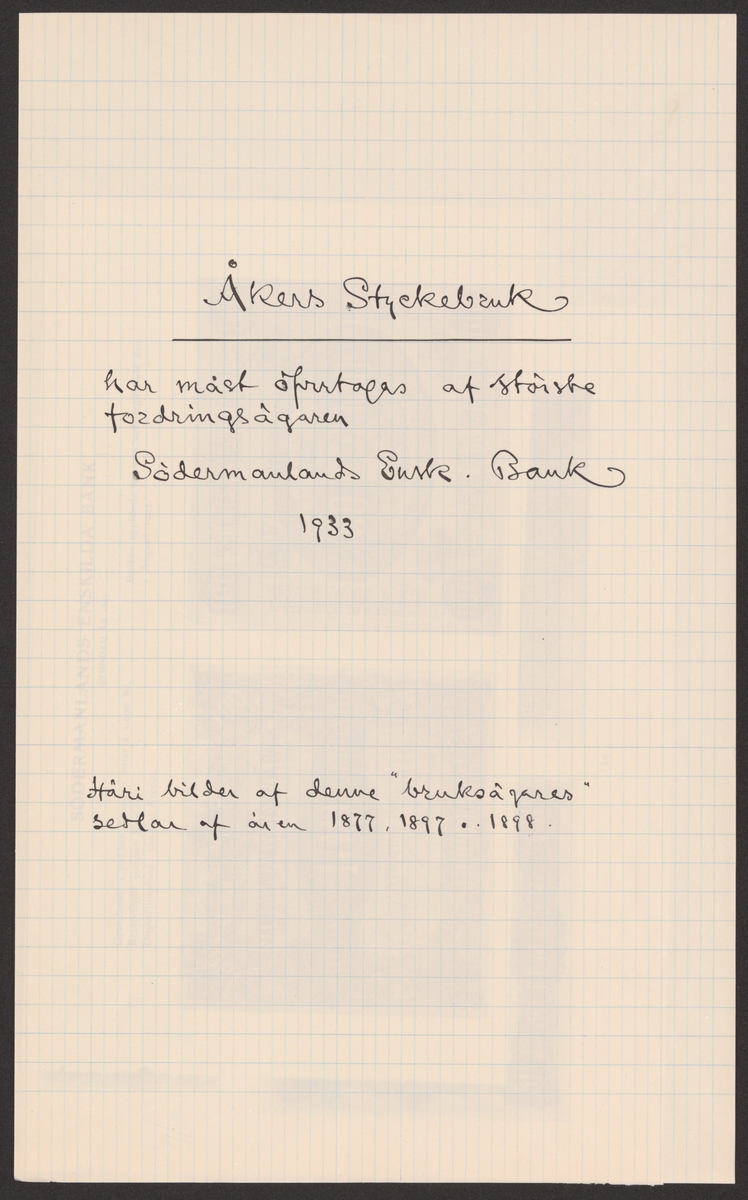 Åkers Styckebruk
har måst öfvertagas af största
fordringsägaren
Södermanlands Ensk. Bank
1933
Häri bilder af denne "bruksägares"
sedlar af åren 1877, 1897 o. 1898.
SÖDERMANLANDS ENSKILDA BANK